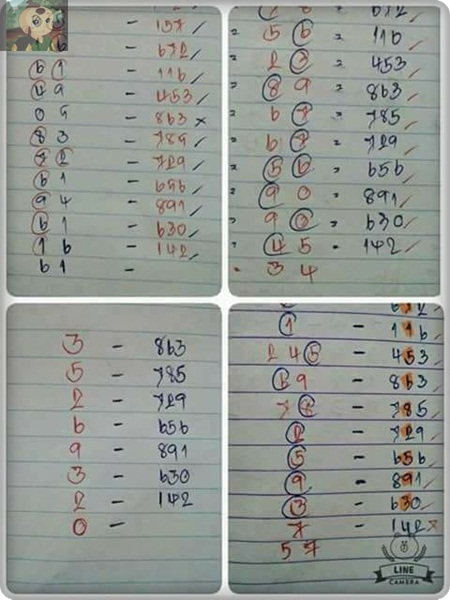 - 157 /
6 - 672 /
61 - 116 /
49 - 453 /
05 - 863 x
83 - 785 /
72 - 729 /
61 - 656 /
94 - 891 /
61 - 630 /
16 - 142 /
61 -
56 = 116 /
23 = 453 /
89 = 863 /
67 = 785 /
67 = 729 /
56 = 656 /
90 = 891 /
90 = 630 /
45 = 142 /
34
3 - 863
5 - 785
2 - 729
6 - 656
9 - 891
3 - 630
2 - 142
0 -
1 - 116 /
245 - 453 /
69 - 863 /
78 - 785 /
2 - 729 /
5 - 656 /
9 - 891 /
3 - 630 /
7 - 142 x
57
LINE
CAMERA